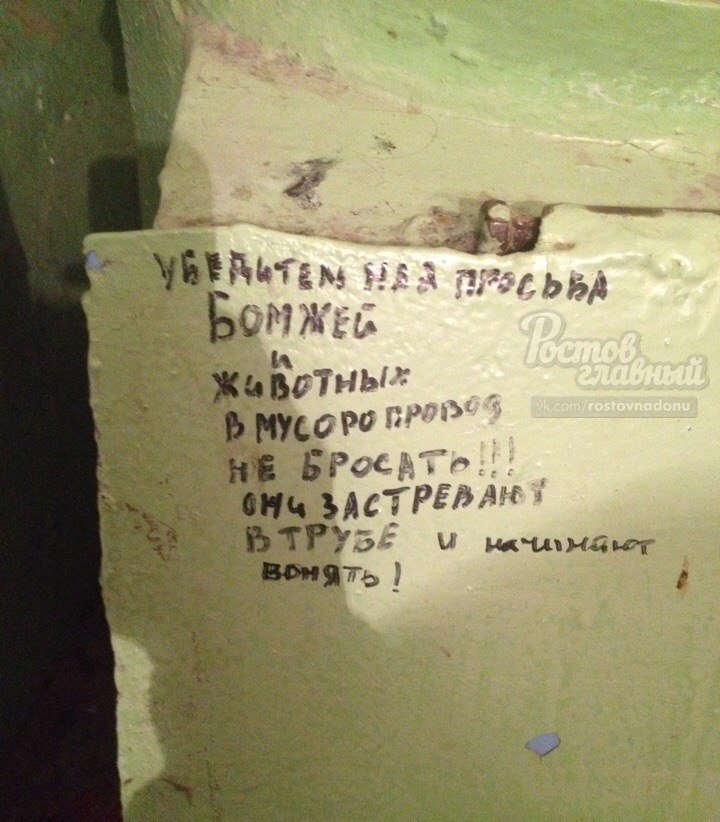 УБЕДИТЕЛЬНАЯ ПРОСЬБА
БОМЖЕЙ
и
ЖИВОТНЫХ
В МУСОРОПРОВОД
НЕ БРОСАТЬ!!!
ОНИ ЗАСТРЕВАЮТ
В ТРУБЕ и начинают
вонять!
Ростов
главный
vk.com/rostovnadonu